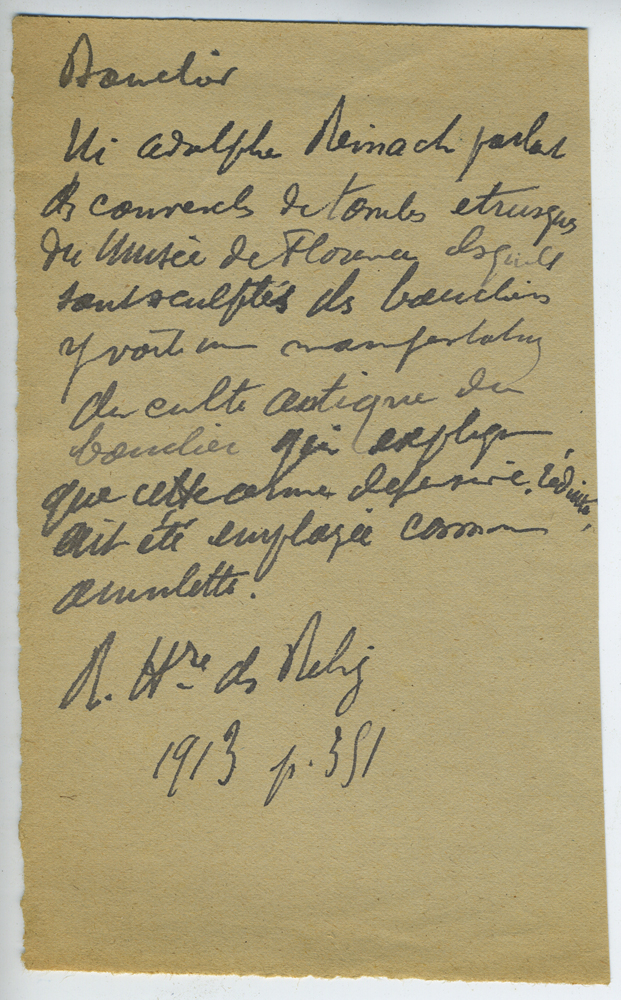 Bouclier
Mr Adolphe Reinach parlant
des couvercles de tombes etrusques
du Musée de Florence desquels
sont sculptés des boucliers
y voit une manifestation
du culte antique du
bouclier qui explique
que cette arme défensive, réduite,
ait été employée comme
amulette.
R. Hre des Relig
1913 p. 351